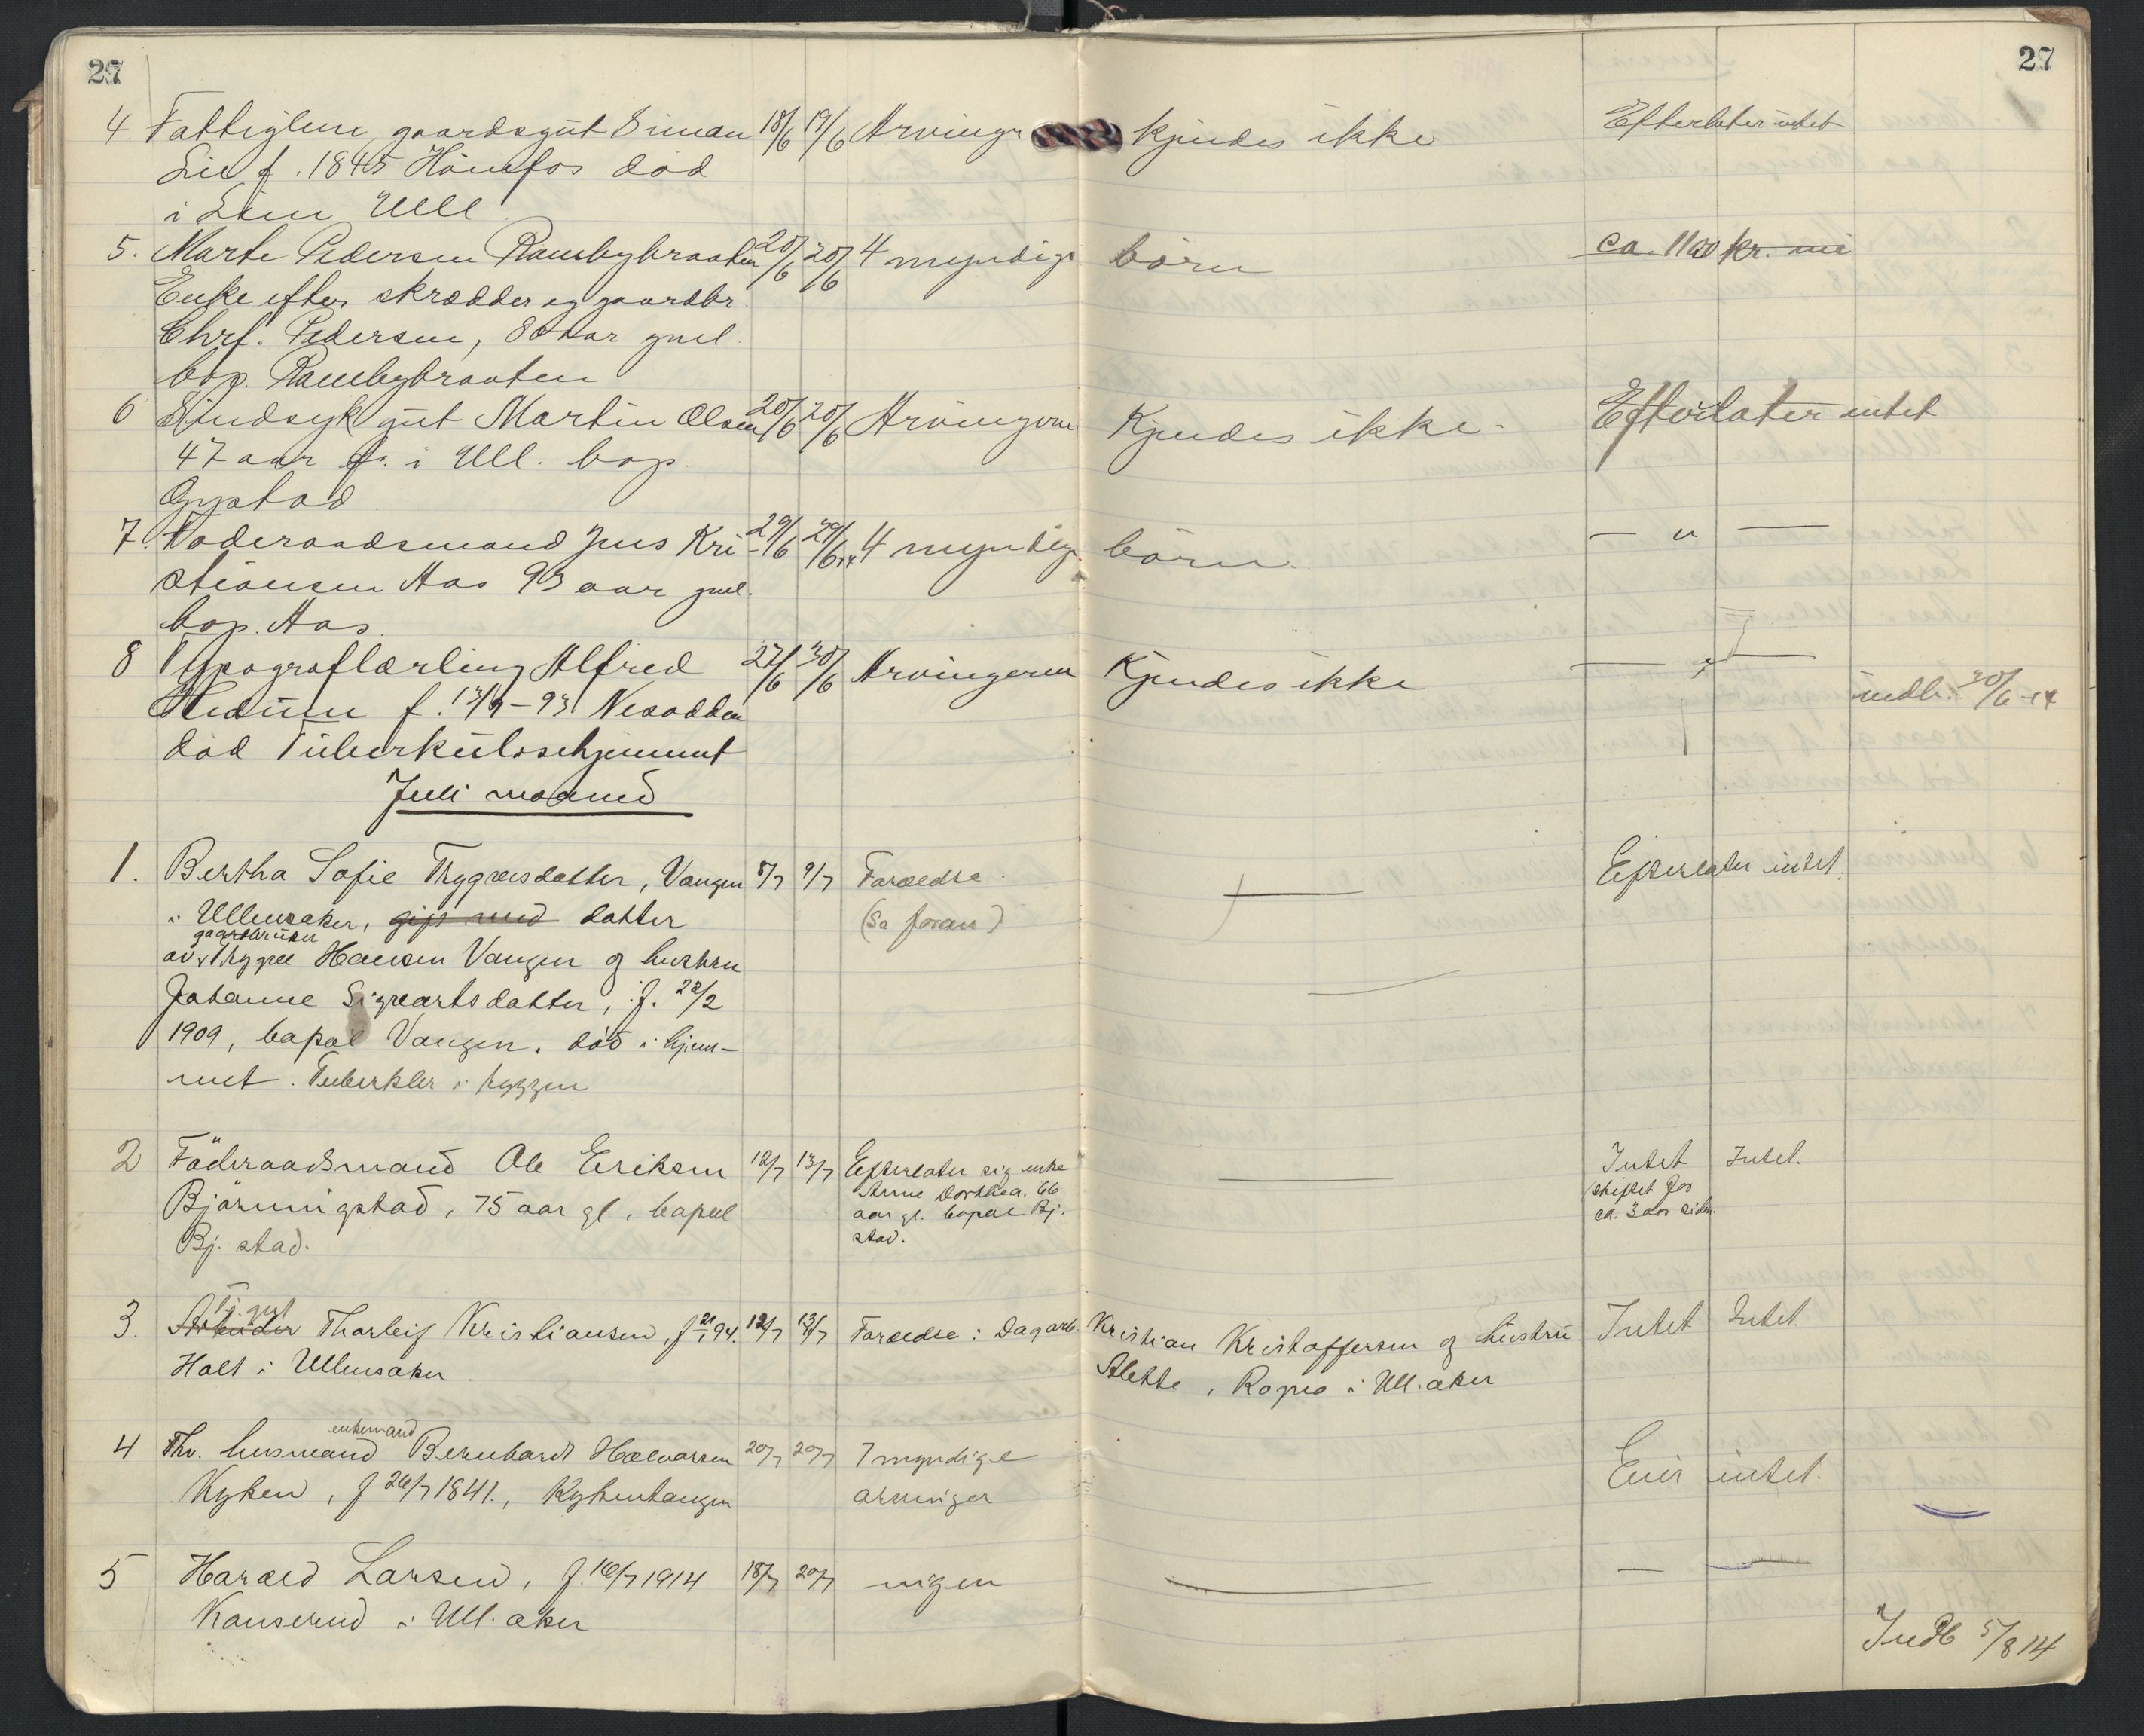 27 27
4. Fattiglem gaardsgut Simen 18/6 19/6 Arvinger kjendes ikke Efterlater intet
Lie f. 1845 Hönefos död
i Ull.
5. Marte Pedersen Rambybraaten 20/6 20/6 4 myndige börn ca. 1100 kr.
Enke efter skrædder og gaardbr.
Chrf. Pedersen, 80 aar gml.
bop. Rambybraaten
6 Sindsyk gut Martin Olsen 20/6 20/6 Arvingerne Kjendes ikke. Efterlater intet
47 aar f. i Ull. bop.
Gystad
7. Föderaadsmand Jens Kri- 29/6 29/6 14 4 myndige börn. — " —
stiansen Aas 93 aar gml.
bop. Aas.
8 Typograflærling Alfred 27/6 30/6 Arvingerne Kjendes ikke — " —
f. Nesodden indb. 30/6-14
död Tuberkulosehjemmet
Juli maaned
1. Bertha Sofie Trygvesdatter, Vangen 8/7 9/7 Forældre Efterlater intet.
i Ullensaker, gift med datter (Se foran)
gaardbruker
av Trygve Hansen Vangen og hustru
Johanne Sigvartsdatter, f. 22/2
1909, bopæl Vangen. död i hjem-
met. Tuberkler i ryggen
2 Föderaadsmand Ole Eriksen 12/7 13/7 Efterlater sig enke — Intet Intet.
Björnmigstad, 75 aar gl, bopæl Anne Dorthea. 66 skiftet for
Bj. stad. aar gl. bopæl Bj. ca. 3 aar siden.
stad.
Tj. gut
3. Arbeider Thorleif Kristiansen, f 21/1 94. 12/7 13/7 Forældre: Dagarb. Kristian Kristoffersen og hustru Intet Intet
Holt i Ullensaker Alette, Rogno i Ull.aker
enkemand
4 Fhv. husmand Bernhard Halvorsen 20/7 20/7 7 myndige Eier intet.
Kyken, f 26/7 1841., Kykenhaugen arvinger
5 Harald Larsen, f. 16/7 1914 18/7 20/7 ingen — — —
Kauserud i Ull.aker
Indb 5/8 14